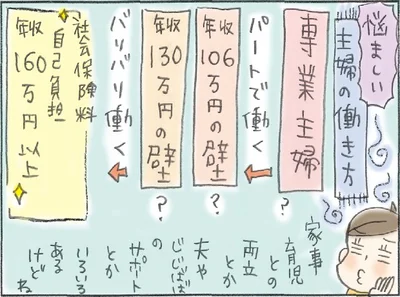 悩ましい
主婦の働き方
専業主婦
?
パートで働く
年収
106
万円の壁
?
年収
130
万円の壁
?
バリバリ働く
社会保険料
自己負担
年収
160
万円以上
家事
育児
との
両立
とか
夫や
じじばば
の
サポート
とか
いろいろ
ある
けどね